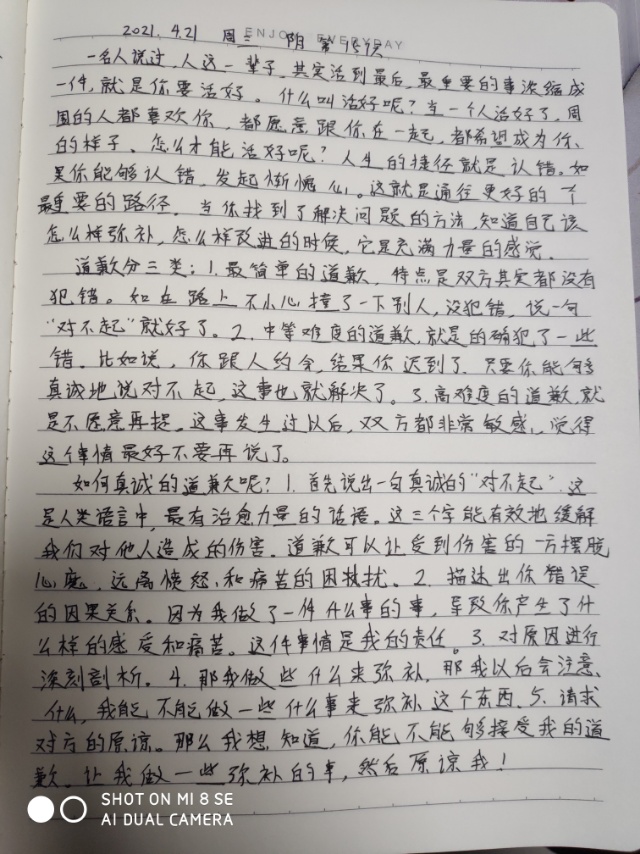 2021.4.21 周三 阴 第757天
ENJOY EVERYDAY
一名人说过，人这一辈子，其实活到最后，最重要的事浓缩成
一件，就是你要活好。什么叫活好呢？当一个人活好了，周
围的人都喜欢你，都愿意跟你在一起，都希望成为你
的样子。怎么才能活好呢？人生的捷径就是认错。如
果你能够认错，发起惭愧心。这就是通往更好的一个
最重要的路径。当你找到了解决问题的方法，知道自己该
怎么样弥补，怎么样改进的时候，它是充满力量的感觉。
道歉分三类：1.最简单的道歉，特点是双方其实都没有
犯错。如在路上不小心撞了一下别人，没犯错，说一句
“对不起”就好了。2.中等难度的道歉，就是的确犯了一些
错。比如说，你跟人约会，结果你迟到了，只要你能够
真诚地说对不起，这事也就解决了。3.高难度的道歉，就
是不愿意再提，这事发生过以后，双方都非常敏感，觉得
这件事情最好不要再说了。
如何真诚的道歉呢？1.首先说出一句真诚的“对不起”，这
是人类语言中，最有治愈力量的话语。这三个字能有效地缓解
我们对他人造成的伤害。道歉可以让受到伤害的一方摆脱
心魔，远离愤怒，和痛苦的困扰。2.描述出你错误
的因果关系。因为我做了一件什么事的事，导致你产生了什
么样的感受和痛苦。这件事情是我的责任。3.对原因进行
深刻剖析。4.那我做些什么来弥补，那我以后会注意
什么，我能不能做一些什么事来弥补这个东西，5.请求
对方的原谅。那么我想知道，你能不能够接受我的道
歉，让我做一些弥补的事，然后原谅我！
SHOT ON MI 8 SE
AI DUAL CAMERA